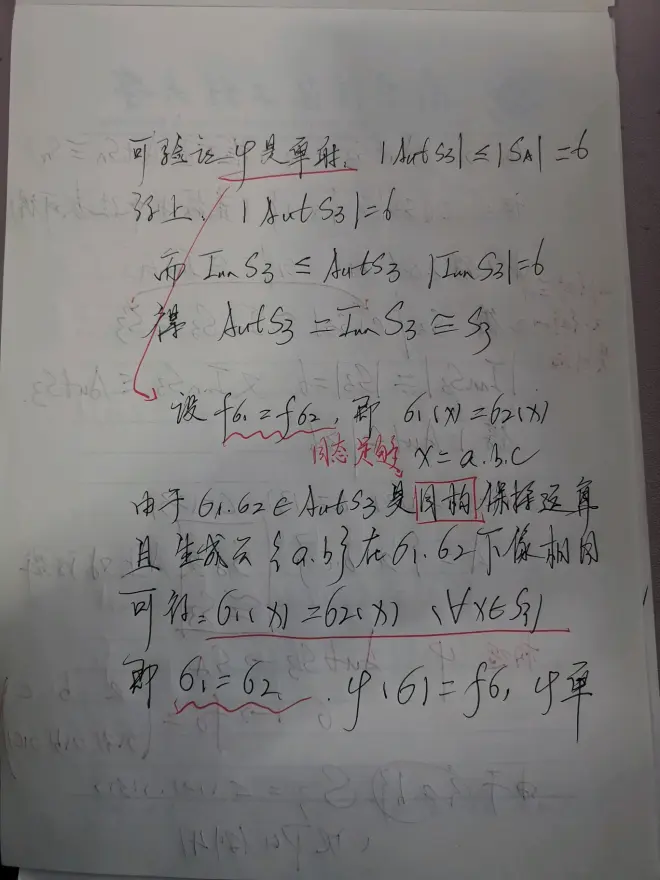 可验证 φ是单射. |Aut S3| ≤ |SA| = 6
综上. |Aut S3| = 6
而 Inn S3 ≤ Aut S3 |Inn S3| = 6
得 Aut S3 = Inn S3 ≅ S3
设 fσ1 = fσ2, 即 σ1(x) = σ2(x)
同态足够 x = a.b.c
由于 σ1.σ2 ∈ Aut S3 是同构 保持运算
且 生成元 {a.b} 在 σ1.σ2 下像相同
可得: σ1(x) = σ2(x) (∀x∈S3)
即 σ1 = σ2. φ(σ) = fσ, φ单